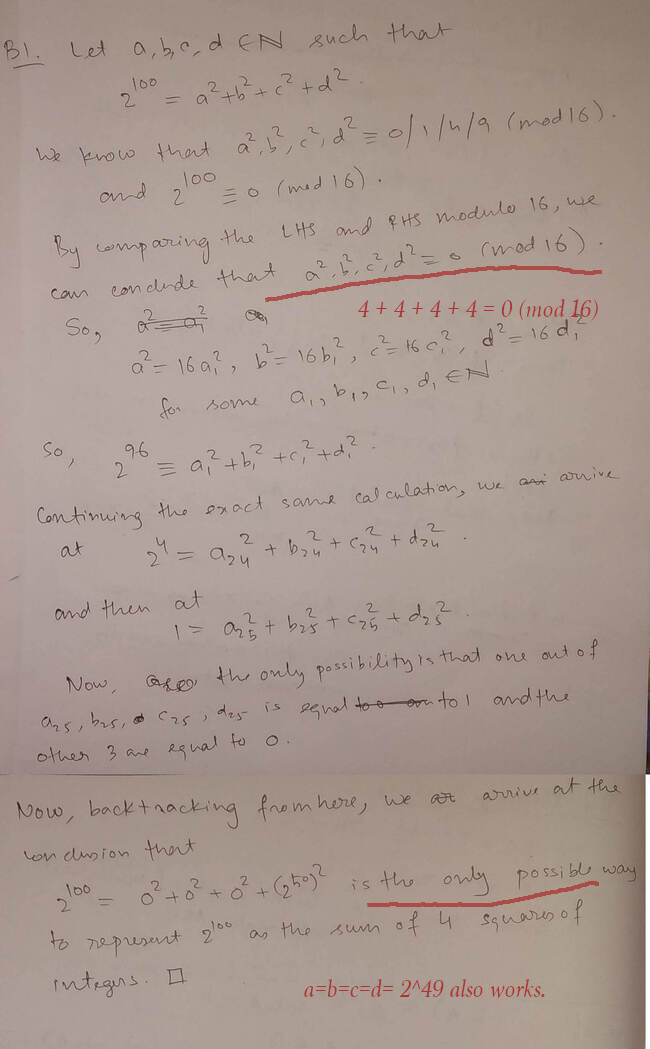 B1. Let a, b, c, d ∈ N such that
2^100 = a² + b² + c² + d².
We know that a², b², c², d² ≡ 0/1/4/9 (mod 16).
and 2^100 ≡ 0 (mod 16).
By comparing the LHS and RHS modulo 16, we
can conclude that a², b², c², d² ≡ 0 (mod 16).
4 + 4 + 4 + 4 = 0 (mod 16)
So,
a² = 16a₁², b² = 16b₁², c² = 16c₁², d² = 16d₁²
for some a₁, b₁, c₁, d₁ ∈ N
So, 2^96 ≡ a₁² + b₁² + c₁² + d₁².
Continuing the exact same calculation, we arrive
at 2^4 = a₂₄² + b₂₄² + c₂₄² + d₂₄².
and then at
1 = a₂₅² + b₂₅² + c₂₅² + d₂₅².
Now, the only possibility is that one out of
a₂₅, b₂₅, c₂₅, d₂₅ is equal to 1 and the
other 3 are equal to 0.
Now, backtracking from here, we arrive at the
conclusion that
2^100 = 0² + 0² + 0² + (2^50)² is the only possible way
to represent 2^100 as the sum of 4 squares of
integers. □
a=b=c=d= 2^49 also works.